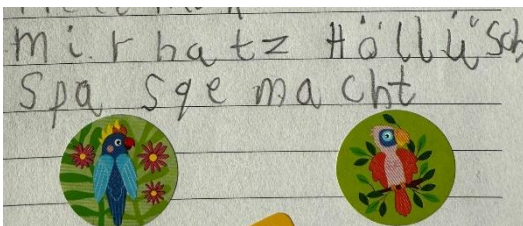 mir hatz Höllüsch
Spa sge macht